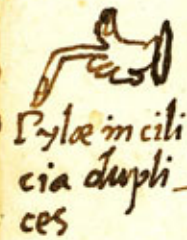 Pylæ in cili
cia dupli_
ces